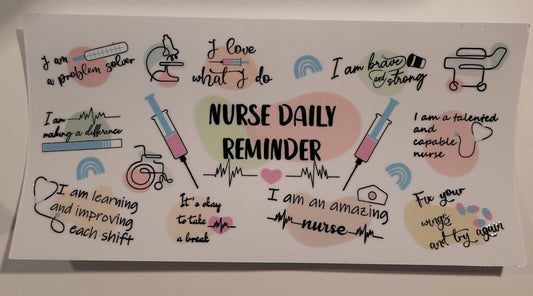 I am
a problem solver
I love
what I do
I am brave
and strong
I am
making a difference
NURSE DAILY
REMINDER
I am a talented
and
capable
nurse
I am learning
and improving
each shift
It's okay
to take
a break
I am an amazing
nurse
Fix your
wings
and try again